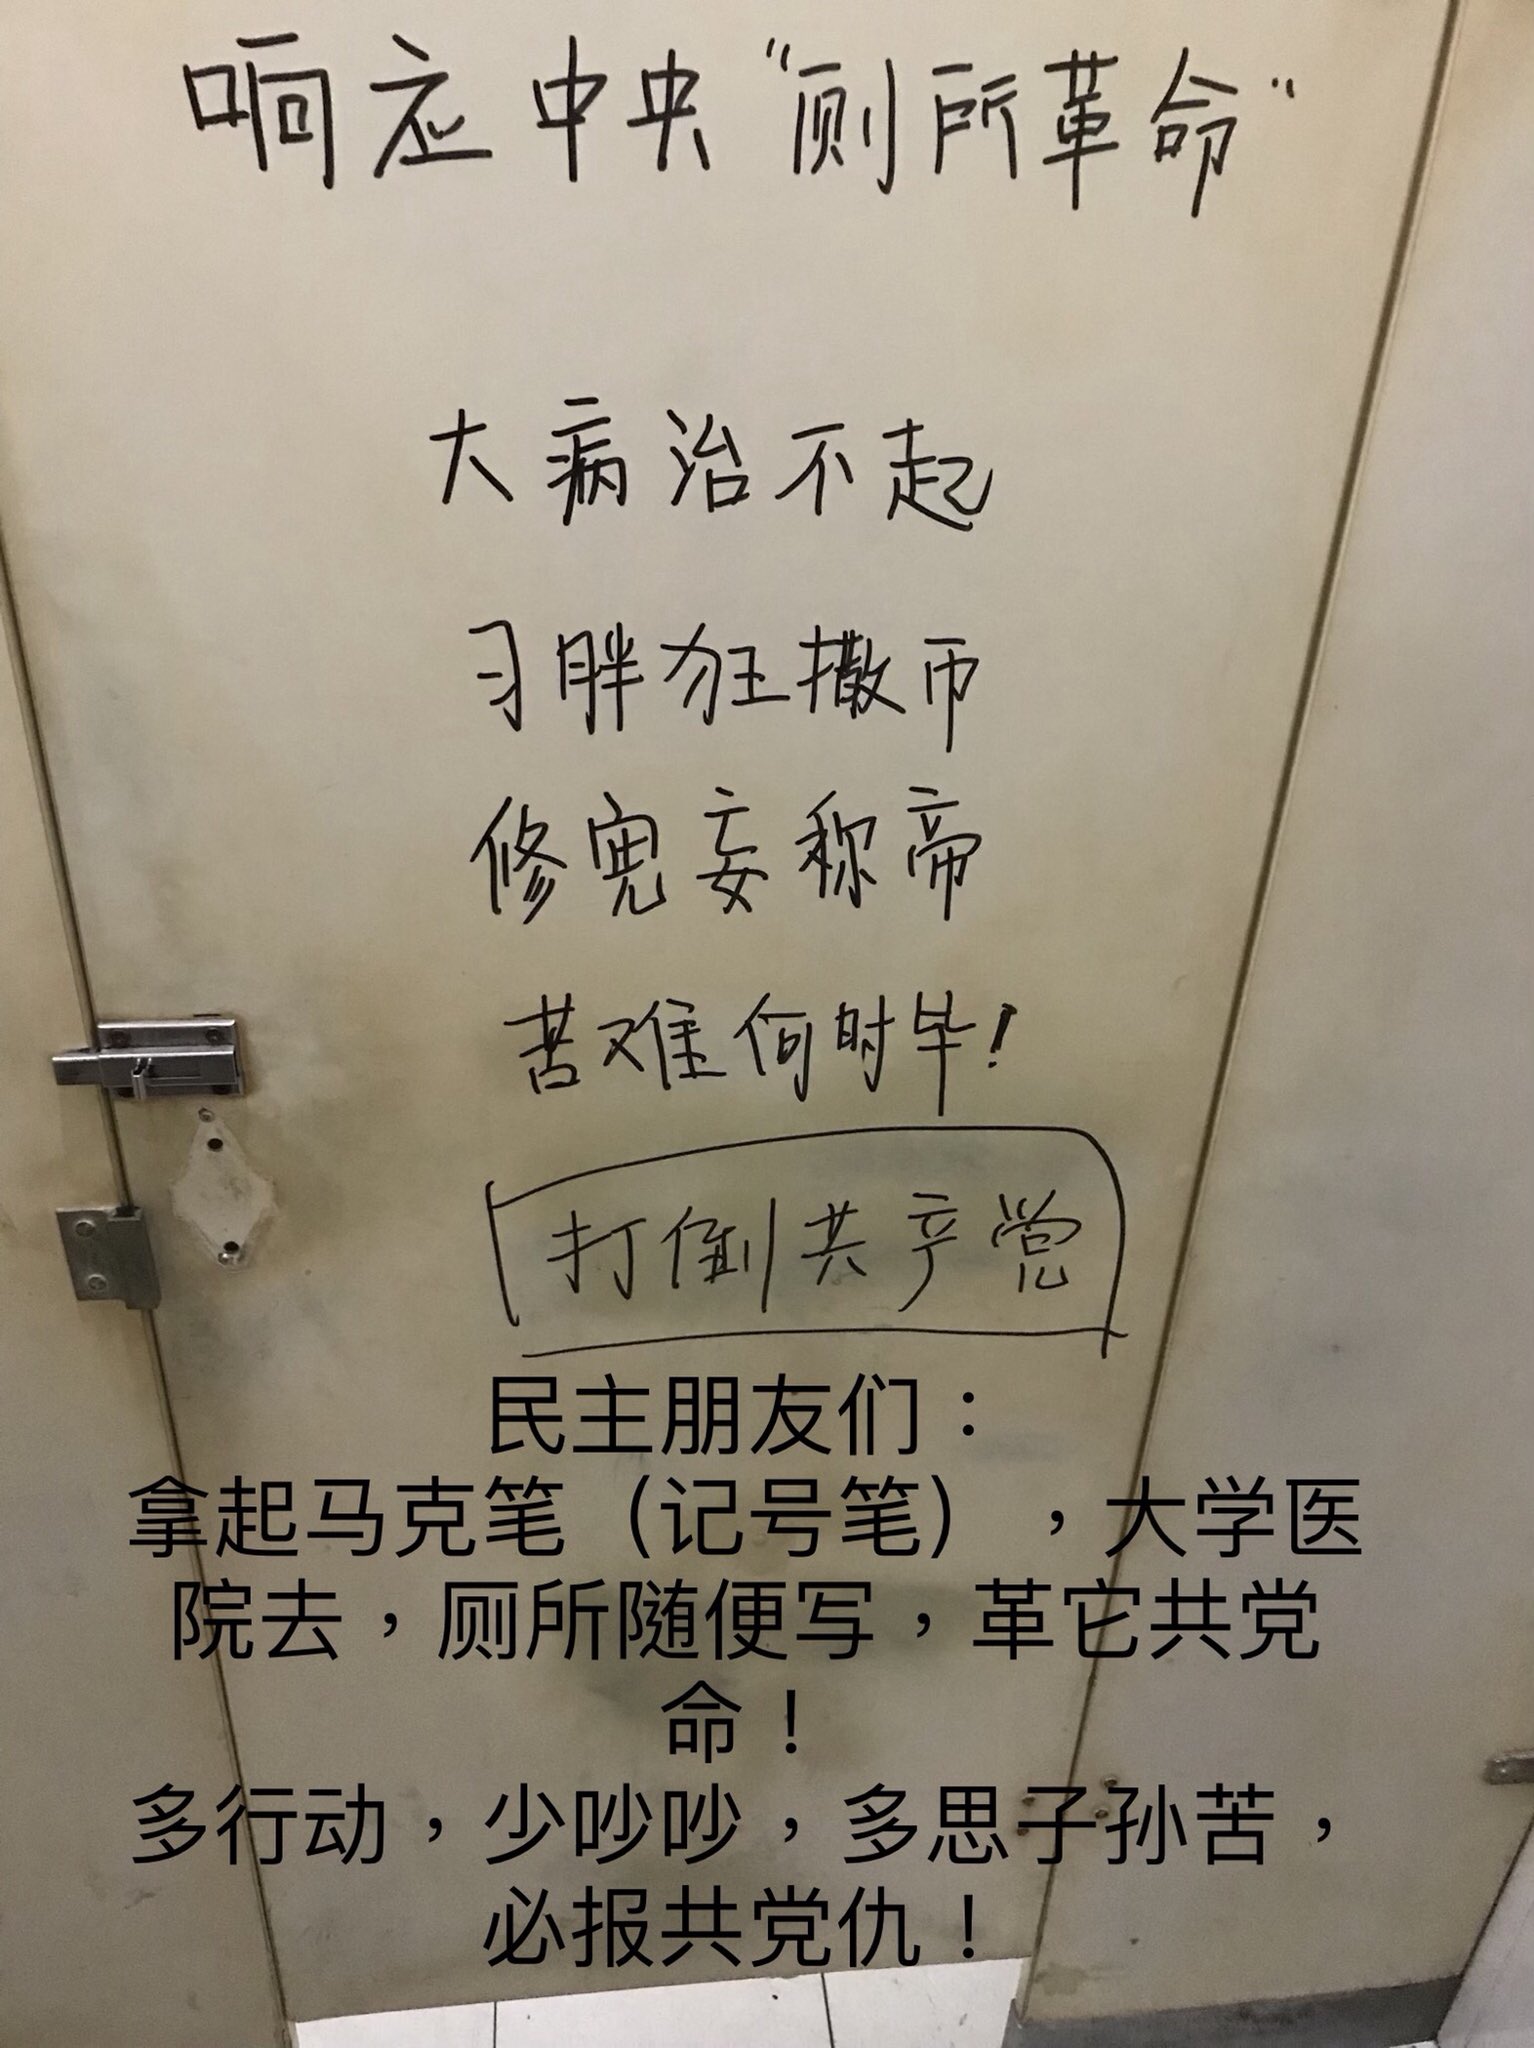 响应中央“厕所革命”
大病治不起
习胖狂撒币
修宪妄称帝
苦难何时毕！
打倒共产党
民主朋友们：
拿起马克笔（记号笔），大学医
院去，厕所随便写，革它共党
命！
多行动，少吵吵，多思子孙苦，
必报共党仇！